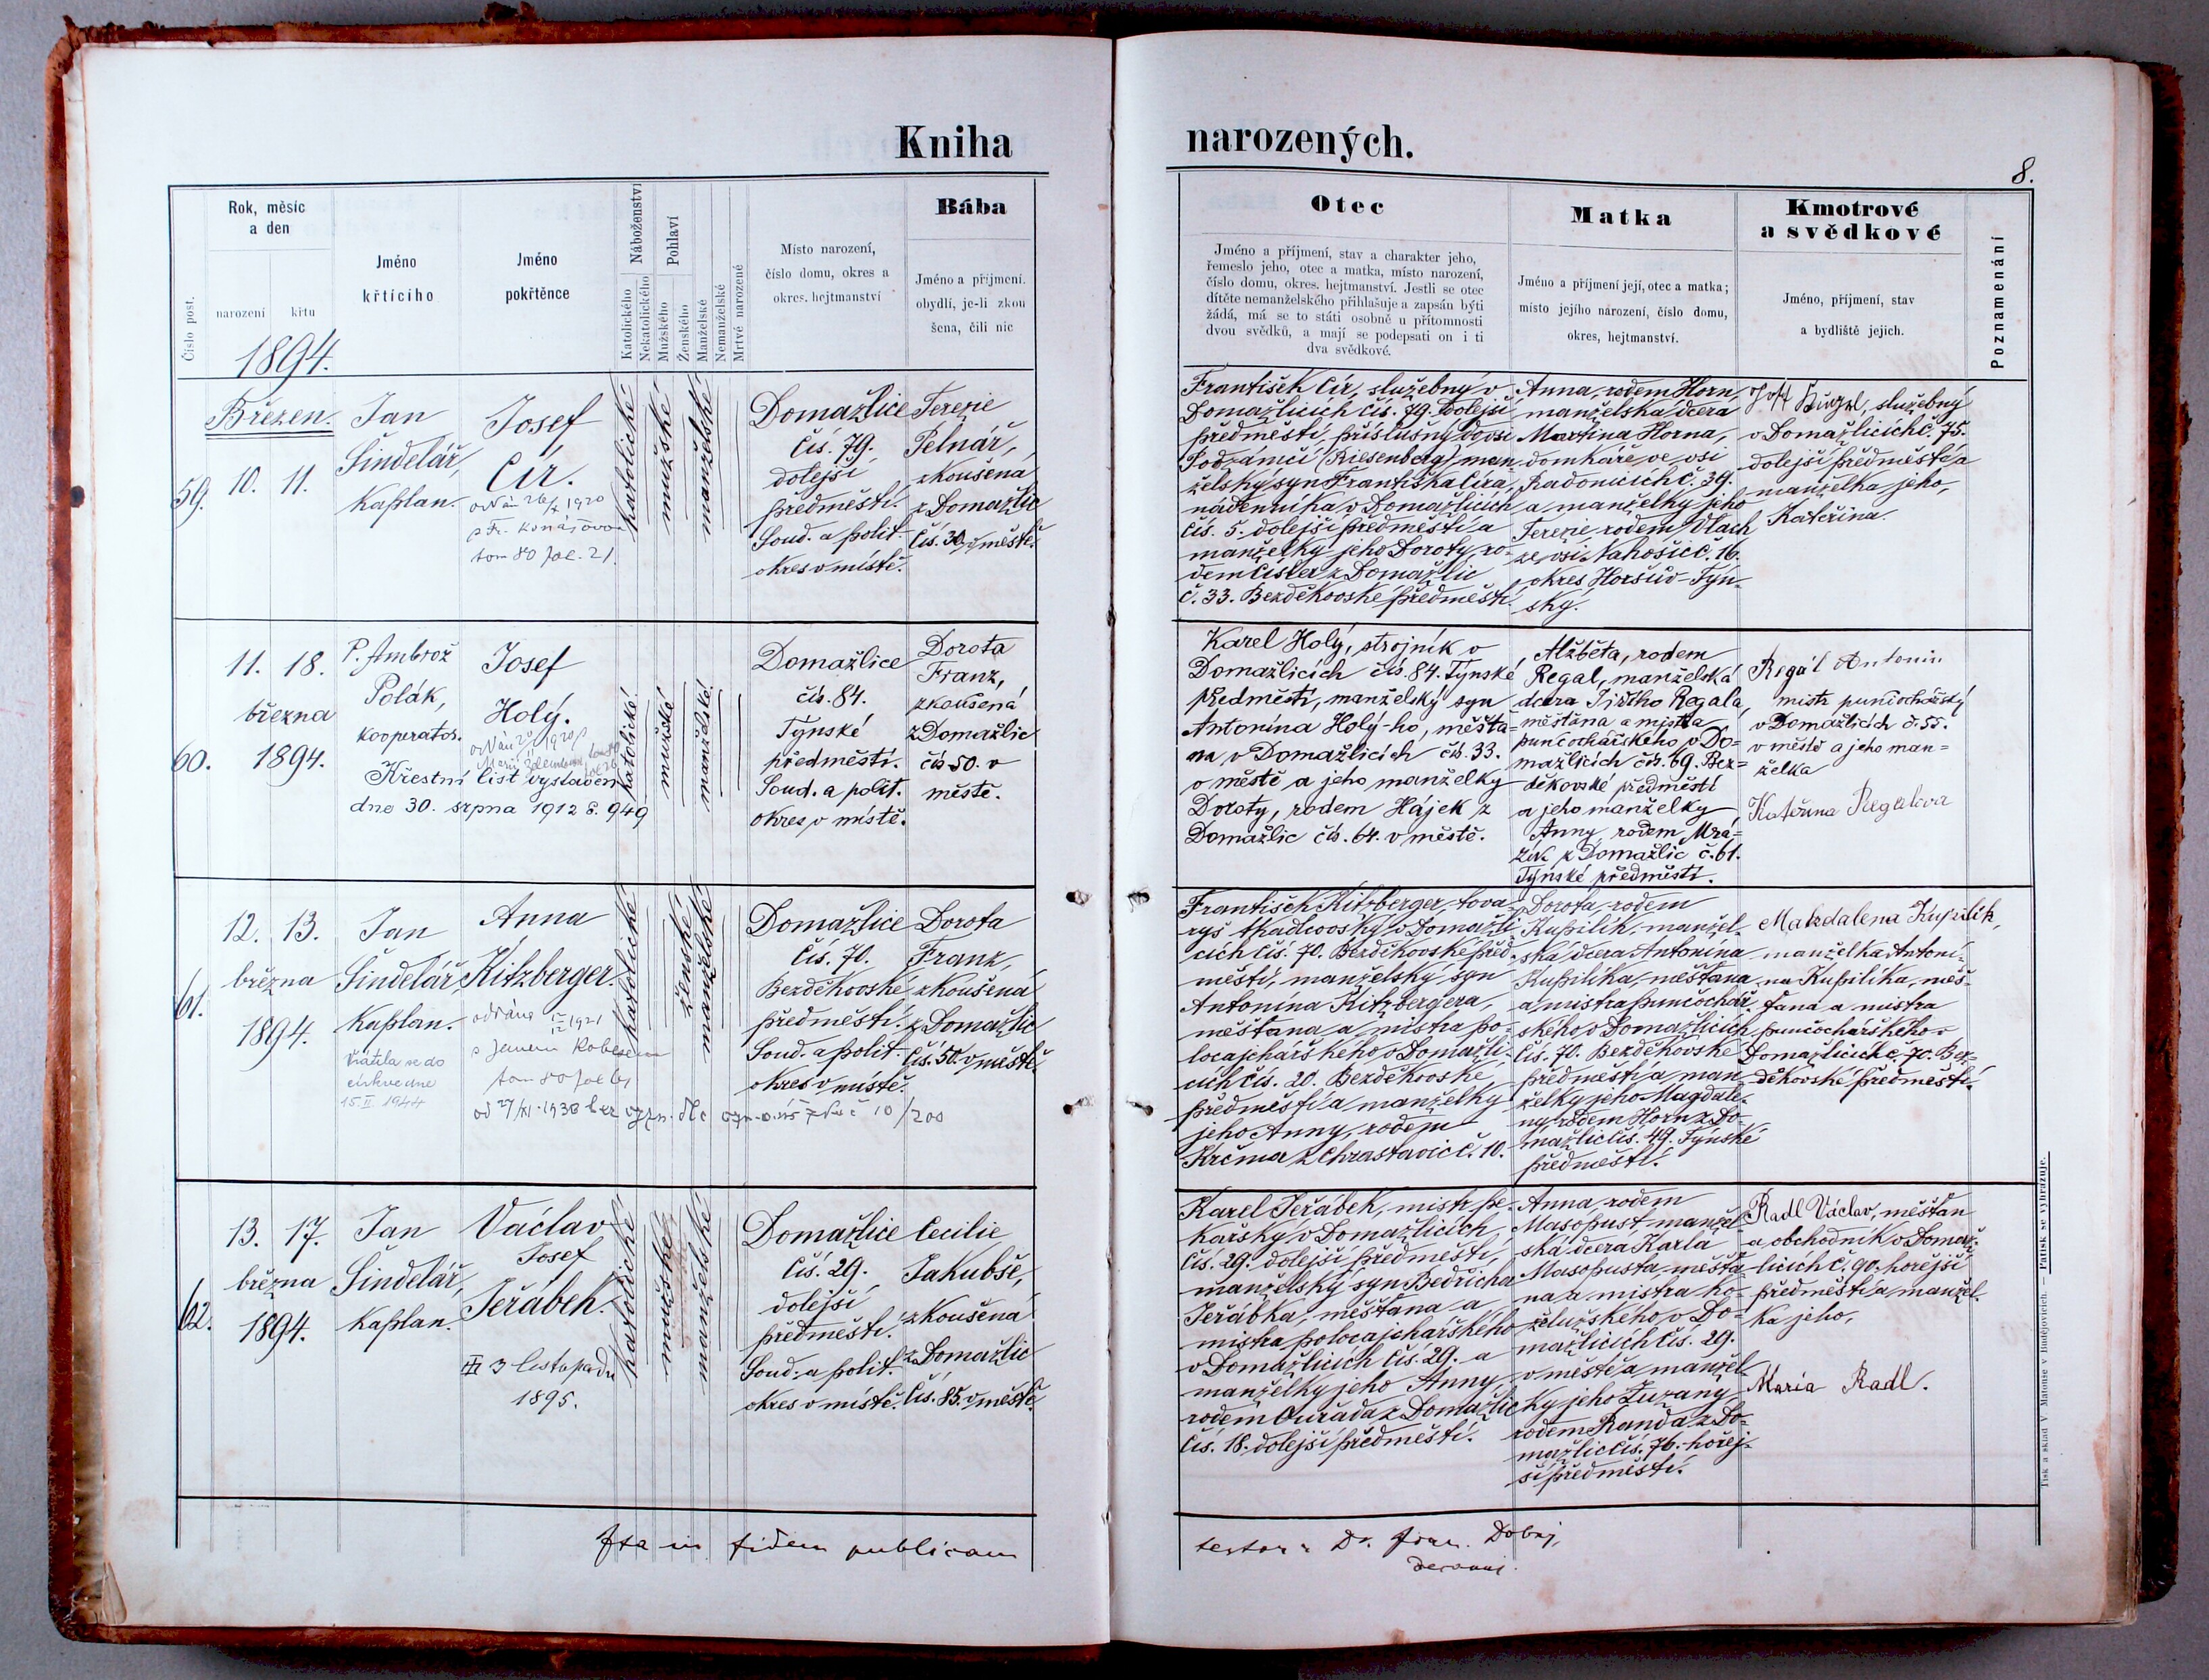 Kniha
narozených.
8.
Číslo post.
Rok, měsíc
a den
narození
křtu
1894.
Jméno
křtícího
Jméno
pokřtěnce
Náboženství
Katolického
Nekatolického
Pohlaví
Mužského
Ženského
Manželské
Nemanželské
Mrtvě narozené
Místo narození,
číslo domu, okres a
okres. hejtmanství
Bába
Jméno a příjmení.
obydlí, je-li zkou
šena, čili nic
Otec
Jméno a příjmení, stav a charakter jeho,
řemeslo jeho, otec a matka, místo narození,
číslo domu, okres. hejtmanství. Jestli se otec
dítěte nemanželského přihlašuje a zapsán býti
žádá, má se to státi osobně u přítomnosti
dvou svědků, a mají se podepsati on i ti
dva svědkové.
Matka
Jméno a příjmení její, otec a matka;
místo jejího národení, číslo domu,
okres, hejtmanství.
Kmotrové
a svědkové
Jméno, příjmení, stav
a bydliště jejich.
Poznamenání
59.
Březen.
10. 11.
Jan
Šindelář,
Kaplan.
Josef
Cír.
tom 80 fol. 21.
katolické
mužské
manželské
Domažlice
čís. 79.
dolejší
předměstí.
Soud. a polit.
okres v místě.
Terezie
Pelnář,
zkoušená
z Domažlic
čís. 30. v městě.
František Cír, služebný v
Domažlicích čís. 79. dolejší
předměstí, příslušný do vsi
Podzámčí (Riesenberg), man
želský syn Františka Círa,
nádenníka v Domažlicích
čís. 5. dolejší předměstí a
manželky jeho Doroty, ro-
dem Císler z Domažlic
č. 33. Bezděkovské předměstí.
Anna, rodem Horn,
manželská dcera
Martina Horna,
domkáře ve vsi
Radonicích č. 39.
a manželky jeho
Terezie, rodem Vlach
ze vsi Nahošic č. 16.
okres Horšův-Týn-
ský.
služebný
v Domažlicích č. 75.
dolejší předměstí a
manželka jeho,
Kateřina.
60.
11. 18.
března
1894.
P. Ambrož
Polák,
kooperator.
Josef
Holý.
Křestní list vystaven
dne 30. srpna 1912 č. 949
katolické
mužské
manželské
Domažlice
čís. 84.
Týnské
předměstí.
Soud. a polit.
okres v místě.
Dorota
Franz,
zkoušená
z Domažlic
čís 50. v
městě.
Karel Holý, strojník v
Domažlicích čís. 84. Týnské
předměstí, manželský syn
Antonína Holý-ho, měšťa-
na v Domažlicích čís. 33.
v městě a jeho manželky
Doroty, rodem Hájek z
Domažlic čís. 64. v městě.
Alžběta, rodem
Regal, manželská
dcera Jiřího Regala,
měšťana a mistra
punčochářského v Do=
mažlicích čís. 69. Bez=
děkovské předměstí
a jeho manželky
Anny, rodem Mrá=
zek z Domažlic č. 61.
Týnské předměstí.
Regál Antonín
mistr punčochářský
v Domažlicích č. 55.
v městě a jeho man=
želka
Kateřina Regalova
61.
12. 13.
března
1894.
Jan
Šindelář,
Kaplan.
Vrátila se do
církve dne
15. II. 1944
Anna
Kitzberger.
oddána 1921
tom 80 fol 61
katolické
ženské
manželské
Domažlice
čís. 70.
Bezděkovské
předměstí.
Soud. a polit.
okres v místě.
Dorota
Franz,
zkoušená
z Domažlic
čís. 50. v městě.
František Kitzberger, tova-
ryš tkadlcovský v Domažli-
cích čís. 70. Bezděkovské před-
městí, manželský syn
Antonína Kitzbergera,
měšťana a mistra po-
locajchářského v Domažli-
cích čís. 20. Bezděkovské
předměstí a manželky
jeho Anny, rodem
Krčma z Chrastavic č. 10.
Dorota, rodem
Kupilík, manžel-
ská dcera Antonína
Kupilíka, měšťana
a mistra punčochář-
ského v Domažlicích
čís. 70. Bezděkovské
předměstí a man-
želky jeho Magdale-
ny, rodem Horn z Do-
mažlic čís. 49. Týnské
předměstí.
Makdalena Kupilik,
manželka Antoní-
na Kupilíka, měš-
ťana a mistra
punčochářského v
Domažlicích č. 70. Bez-
děkovské předměstí.
62.
13. 17.
března
1894.
Jan
Šindelář,
Kaplan.
Václav
Josef
Jeřábek.
3 listopadu
1895.
katolické
mužské
manželské
Domažlice
čís. 29.
dolejší
předměstí.
Soud. a polit.
okres v místě.
Cecilie
Jakubše,
zkoušená
z Domažlic
čís. 85. v městě.
Karel Jeřábek, mistr pe-
kařský v Domažlicích
čís. 29. dolejší předměstí,
manželský syn Bedřicha
Jeřábka, měšťana a
mistra polocajchářského
v Domažlicích čís. 29. a
manželky jeho Anny,
rodem Ouřada z Domažlic
čís. 18. dolejší předměstí.
Anna, rodem
Masopust, manžel-
ská dcera Karla
Masopusta, měšťa-
na a mistra ko-
želužského v Do-
mažlicích čís. 29.
v městě a manžel-
ky jeho Zuzany
rodem Randa z Do-
mažlic čís. 76. hořej-
ší předměstí.
Radl Václav, měšťan
a obchodník v Domaž-
licích č. 90. hořejší
předměstí a manžel-
ka jeho,
Maria Radl.
Ita in fidem publicam
Tisk a sklad V. Matouše v Budějovicích. — Patisk se vyhrazuje.